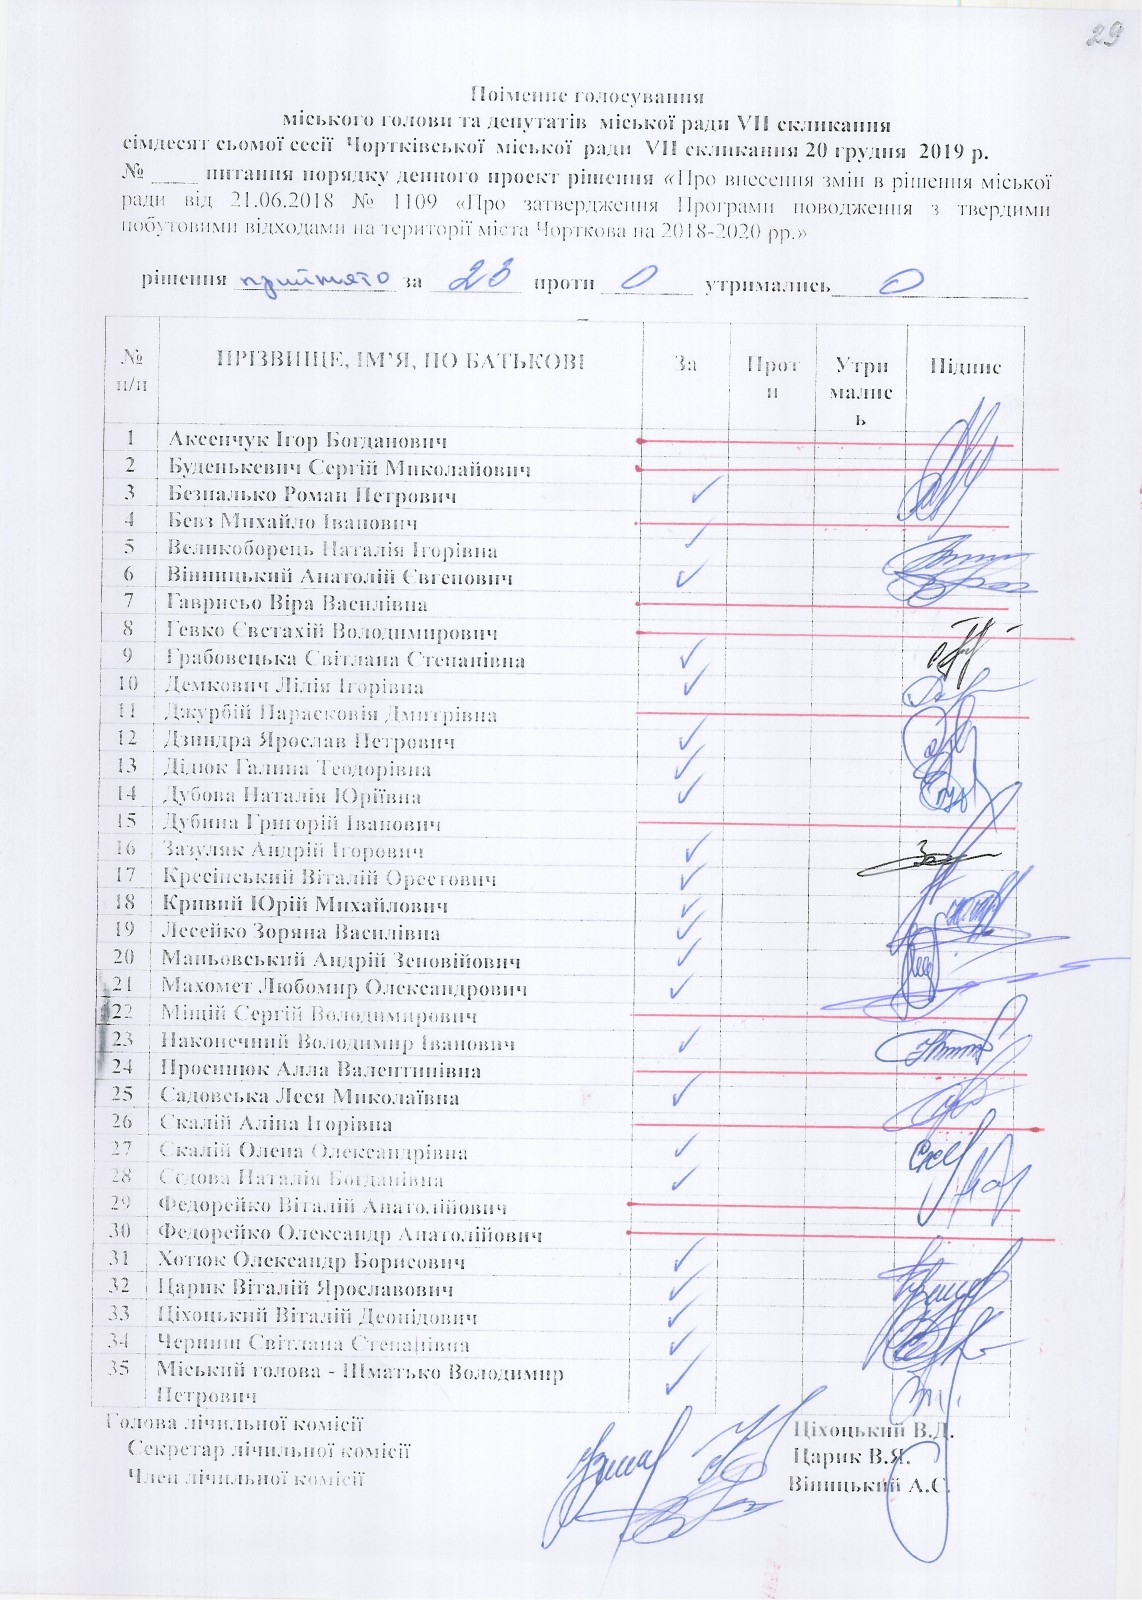 29
Поіменне голосування
міського голови та депутатів міської ради VII скликання
сімдесят сьомої сесії Чортківської міської ради VII скликання 20 грудня 2019 р.
№ ____ питання порядку денного проект рішення «Про внесення змін в рішення міської
ради від 21.06.2018 № 1109 «Про затвердження Програми поводження з твердими
побутовими відходами на території міста Чорткова на 2018-2020 рр.»
рішення прийнято за 23 проти 0 утримались 0
№ п/п ПРІЗВИЩЕ, ІМ’Я, ПО БАТЬКОВІ За Проти Утримались Підпис
1 Аксенчук Ігор Богданович
2 Буденькевич Сергій Миколайович
3 Безпалько Роман Петрович ✓
4 Бевз Михайло Іванович
5 Великоборець Наталія Ігорівна ✓
6 Вінницький Анатолій Євгенович ✓
7 Гаврисьо Віра Василівна
8 Гевко Євстахій Володимирович
9 Грабовецька Світлана Степанівна ✓
10 Демкович Лілія Ігорівна ✓
11 Джурбій Парасковія Дмитрівна
12 Дзиндра Ярослав Петрович ✓
13 Дідюк Галина Теодорівна ✓
14 Дубова Наталія Юріївна ✓
15 Дубина Григорій Іванович
16 Зазуляк Андрій Ігорович ✓
17 Кресінський Віталій Орестович ✓
18 Кривий Юрій Михайлович ✓
19 Лесейко Зоряна Василівна ✓
20 Маньовський Андрій Зеновійович ✓
21 Махомет Любомир Олександрович ✓
22 Міщій Сергій Володимирович
23 Наконечний Володимир Іванович ✓
24 Просинюк Алла Валентинівна
25 Садовська Леся Миколаївна ✓
26 Скалій Аліна Ігорівна
27 Скалій Олена Олександрівна ✓
28 Сєдова Наталія Богданівна ✓
29 Федорейко Віталій Анатолійович
30 Федорейко Олександр Анатолійович
31 Хотюк Олександр Борисович ✓
32 Царик Віталій Ярославович ✓
33 Ціхоцький Віталій Деонідович ✓
34 Чернини Світлана Степанівна ✓
35 Міський голова - Шматько Володимир
Петрович ✓
Голова лічильної комісії Ціхоцький В.Д.
Секретар лічильної комісії Царик В.Я.
Член лічильної комісії Вінницький А.Є.